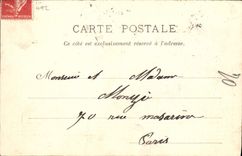 CARTE POSTALE
Ce côté est exclusivement réservé à l'adresse.
Monsieur et Madame
70 rue mazarine
Paris